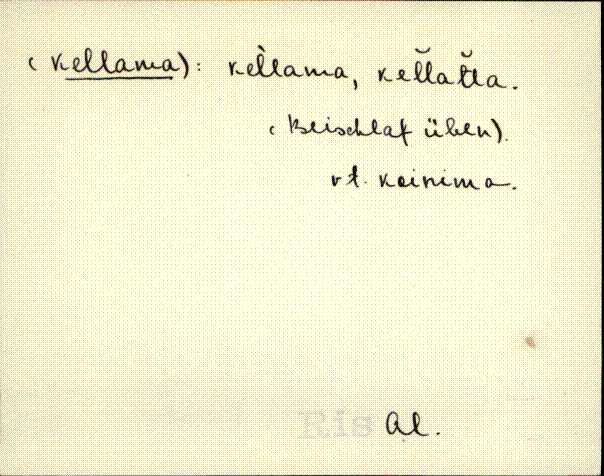 (kellama): kel̀lama, kel̆lat̆ta.
(Beischlaf üben).
vt. koinima.
Ris Al.